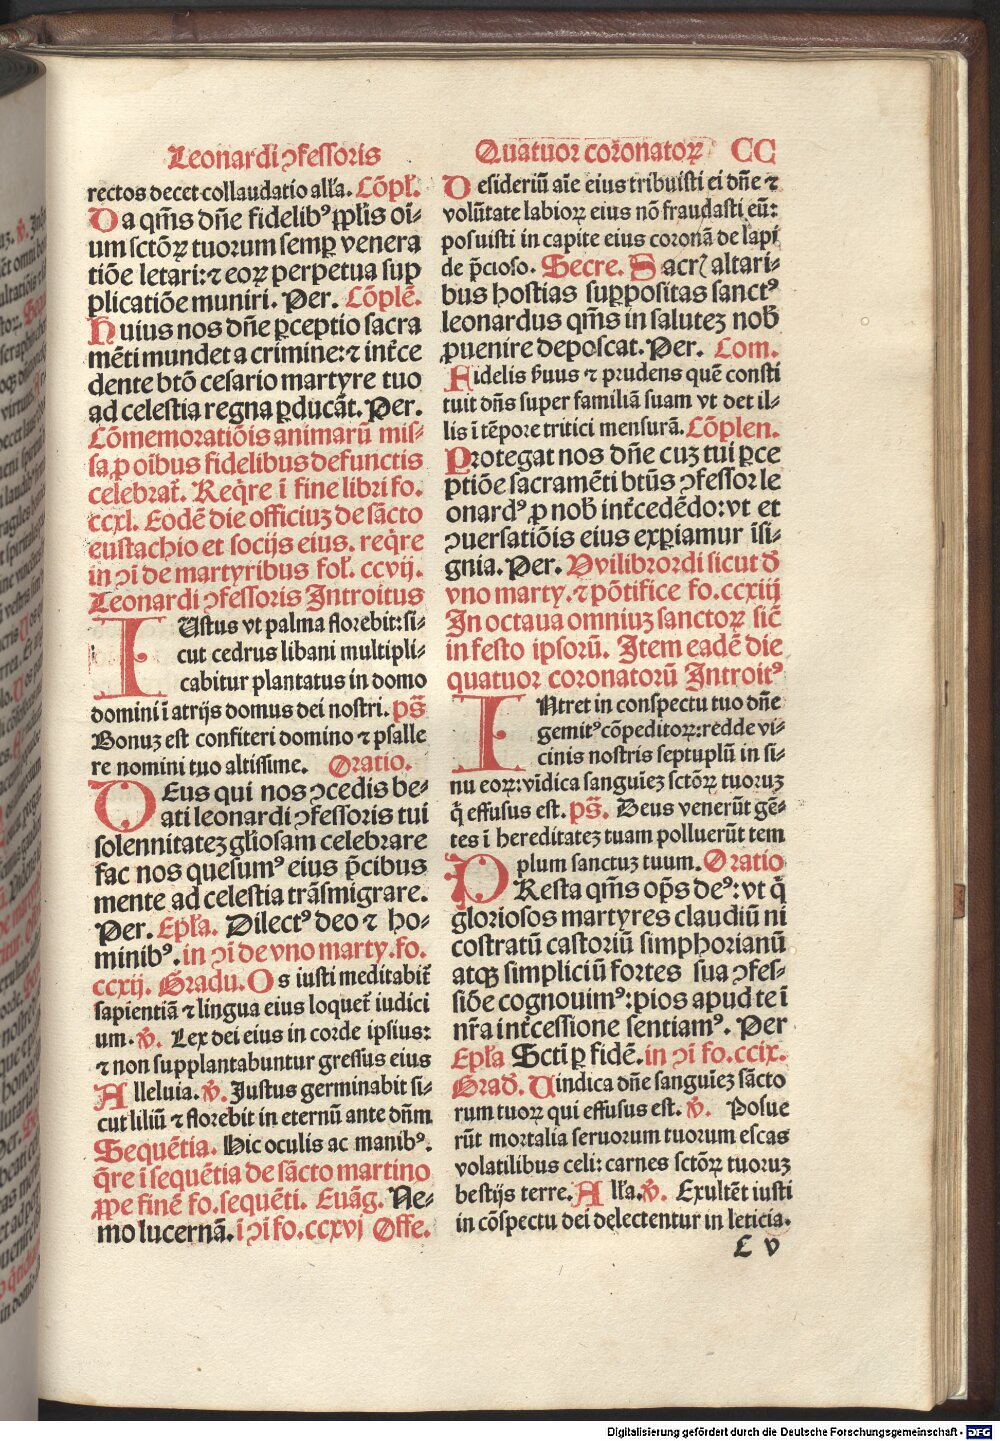 Leonardi ꝯfessoris
rectos decet collaudatio all'a. Cōpl'.
Da qm̄s dn̄e fidelibꝰ ꝓpl'is oī-
um sctōꝝ tuorum semꝑ venera
tiōe letari: ⁊ eoꝝ perpetua sup
plicatiōe muniri. Per. Cōplē.
Huius nos dn̄e ꝑceptio sacra
mēti mundet a crimine: ⁊ int̄ce
dente btō cesario martyre tuo
ad celestia regna ꝑducāt. Per.
Cōmemoratiōis animarū mis-
sa ꝓ oībus fidelibus defunctis
celebrat̄. Req̄re ī fine libri fo.
ccxl. Eodē die officiuꝫ de sācto
eustachio et socijs eius. req̄re
in ꝯī de martyribus fol'. ccvij.
Leonardi ꝯfessoris Introitus
IUstus vt palma florebit: si-
cut cedrus libani multipli-
cabitur plantatus in domo
domini ī atrijs domus dei nostri. ps̄
Bonuꝫ est confiteri domino ⁊ psalle
re nomini tuo altissime. Oratio.
DEus qui nos ꝯcedis be-
ati leonardi ꝯfessoris tui
solennitateꝫ gl'iosam celebrare
fac nos quesumꝰ eius p̄cibus
mente ad celestia trāsmigrare.
Per. Epl'a. Dilectꝰ deo ⁊ ho-
minibꝰ. in ꝯī de vno marty. fo.
ccxij. Gradu. Os iusti meditabit̄
sapientiā ⁊ lingua eius loquet̄ iudici
um. ℣. Lex dei eius in corde ipsius:
⁊ non supplantabuntur gressus eius
Alleluia. ℣. Justus germinabit si-
cut liliū ⁊ florebit in eternū ante dn̄m
Sequētia. Hic oculis ac manibꝰ.
q̄re ī sequētia de sācto martino
ꝓpe finē fo. sequēti. Euāg. Ne-
mo lucernā. ī ꝯī fo. ccxvj Offe.
Quatuor coronatoꝝ CC
Desideriū aīe eius tribuisti ei dn̄e ⁊
volūtate labioꝝ eius nō fraudasti eū:
posuisti in capite eius coronā de lapi
de p̄cioso. Secre. Sacrꝭ altari-
bus hostias suppositas sanctꝰ
leonardus qm̄s in saluteꝫ nob̄
ꝓuenire deposcat. Per. Com.
Fidelis s̄uus ⁊ prudens quē consti
tuit dn̄s super familiā suam vt det il-
lis ī tēpore tritici mensurā. Cōplen.
Protegat nos dn̄e cuꝫ tui ꝑce
ptiōe sacramēti btūs ꝯfessor le
onardꝰ ꝓ nob̄ int̄cedēdo: vt et
ꝯuersatiōis eius experiamur īsi-
gnia. Per. Vvilibrordi sicut d̄
vno marty. ⁊ pōtifice fo. ccxiij
In octaua omniuꝫ sanctoꝝ sic̄
in festo ipsorū. Item eadē die
quatuor coronatorū Introitꝰ
INtret in conspectu tuo dn̄e
gemitꝰ cōpeditoꝝ: redde vi-
cinis nostris septuplū in si-
nu eoꝝ: vīdica sanguīeꝫ sctōꝝ tuoruꝫ
q̄ effusus est. ps̄. Deus venerūt gē-
tes ī hereditateꝫ tuam polluerūt tem
plum sanctuꝫ tuum. Oratio
PResta qm̄s op̄s deꝰ: vt q̄
gloriosos martyres claudiū ni
costratū castoriū simphorianū
atqꝫ simpliciū fortes sua ꝯfes-
siōe cognouimꝰ: pios apud te ī
nr̄a int̄cessione sentiamꝰ. Per
Epl'a Scti ꝑ fidē. in ꝯī fo. ccix.
Grad̄. Uindica dn̄e sanguīeꝫ sācto
rum tuoꝝ qui effusus est. ℣. Posue
rūt mortalia seruorum tuorum escas
volatilibus celi: carnes sctōꝝ tuoruꝫ
bestijs terre. All'a. ℣. Exultēt iusti
in cōspectu dei delectentur in leticia.
C v
Digitalisierung gefördert durch die Deutsche Forschungsgemeinschaft - DFG